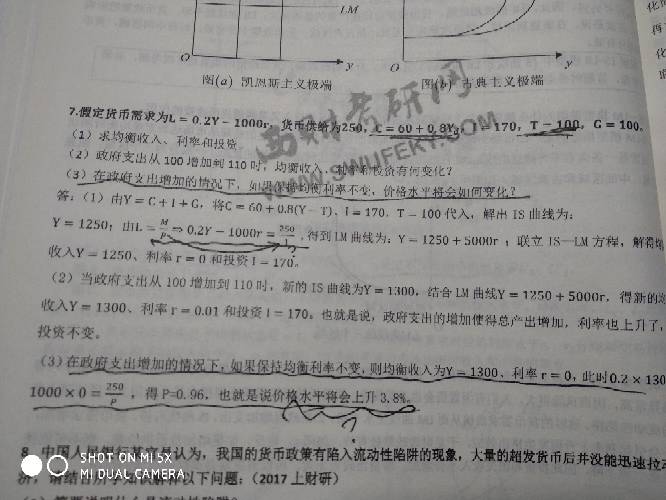 LM
O
y
O
y
图(a) 凯恩斯主义极端
图(b) 古典主义极端
7.假定货币需求为L = 0.2Y − 1000r，货币供给为250，C = 60 + 0.8Y，I = 170，T = 100，G = 100。
（1）求均衡收入、利率和投资
（2）政府支出从 100 增加到 110 时，均衡收入、利率和投资有何变化？
（3）在政府支出增加的情况下，如果保持均衡利率不变，价格水平将会如何变化？
答：（1）由Y = C + I + G，将C = 60 + 0.8(Y − T)、I = 170、T = 100 代入，解出 IS 曲线为：
Y = 1250；由L = M/P ⇒ 0.2Y − 1000r = 250/1，得到 LM 曲线为：Y = 1250 + 5000r ；联立 IS—LM 方程，解得均
收入Y = 1250、利率 r = 0 和投资 I = 170。
（2）当政府支出从 100 增加到 110 时，新的 IS 曲线为Y = 1300，结合 LM 曲线Y = 1250 + 5000r，得新的均
收入Y = 1300、利率 r = 0.01 和投资 I = 170。也就是说，政府支出的增加使得总产出增加，利率也上升了，
投资不变。
（3）在政府支出增加的情况下，如果保持均衡利率不变，则均衡收入为Y = 1300、利率 r = 0，此时0.2 × 130
1000 × 0 = 250/P，得 P=0.96，也就是说价格水平将会上升 3.8%。
?
8. 中国人民银行某官员认为，我国的货币政策有陷入流动性陷阱的现象，大量的超发货币后并没能迅速拉
济，请结合所学知识解释以下问题：（2017 上财研）
西财考研网
WWW.SWUFEKY.COM
SHOT ON MI 5X
MI DUAL CAMERA